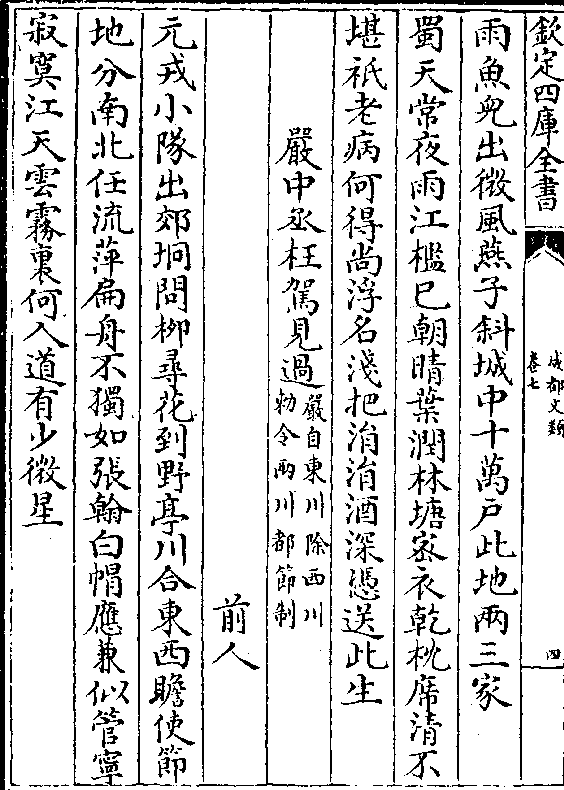 欽定四庫全書
成都文類
卷七
四
雨魚兒出微風燕子斜城中十萬户此地兩三家
蜀天常夜雨江檻已朝晴葉潤林塘宻衣乾枕席清不
堪祇老病何得尚浮名淺把涓涓酒深憑送此生
嚴中丞枉駕見過嚴自東川除西川
勑令兩川都節制
前人
元戎小隊出郊坰問栁尋花到野亭川合東西瞻使節
地分南北任流萍扁舟不獨如張翰白帽應兼似管寧
寂寞江天雲霧裏何人道有少微星